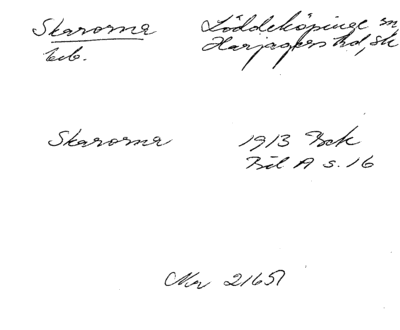 Skarorna Löddeköpinge sn
beb. Harjagers hd, Sk
Skarorna 1913 Bok
Bil A s. 16
Nr 21651